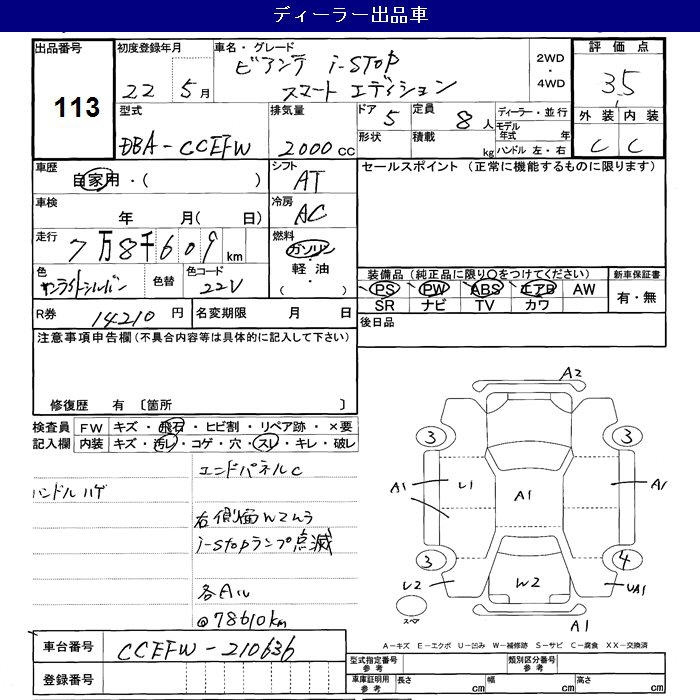 ディーラー出品車
出品番号
113
初度登録年月
22 5月
車名・グレード
ビアンテ i-STOP
スマートエディション
2WD
・
4WD
評価点
3.5
外装 内装
C C
型式
DBA-CCEFW
排気量
2000cc
ドア 5
定員 8人
形状
積載 kg
ディーラー・並行
モデル年式 年
ハンドル 左・右
車歴
自家用・( )
シフト
AT
セールスポイント (正常に機能するものに限ります)
車検
年 月( 日)
冷房
AC
走行
7万8千609km
燃料
ガソリン
・
軽油
・
( )
色
サンライトシルバー
色替
色コード
22V
装備品(純正品に限り○をつけてください)
新車保証書
PS PW ABS エアB AW
SR ナビ TV カワ
有・無
R券
14210円
名変期限 月 日
後日品
注意事項申告欄(不具合内容等は具体的に記入して下さい)
修復歴 有 〔箇所 〕
検査員
記入欄
FW キズ・飛石・ヒビ割・リペア跡・×要
内装 キズ・汚レ・コゲ・穴・スレ・キレ・破レ
エンドパネルC
ハンドルハゲ
右側面W2ムラ
i-stopランプ点滅
各AU
@78610km
A2
3 3
A1 U1 A1 A1
3 4
U2 W2 UA1
スペア
A1
A-キズ E-エクボ U-凹み W-補修跡 S-サビ C-腐食 XX-交換済
車台番号
CCEFW-210636
登録番号
型式指定番号
参考
類別区分番号
参考
車庫証明用
参考
長さ cm 幅 cm 高さ cm